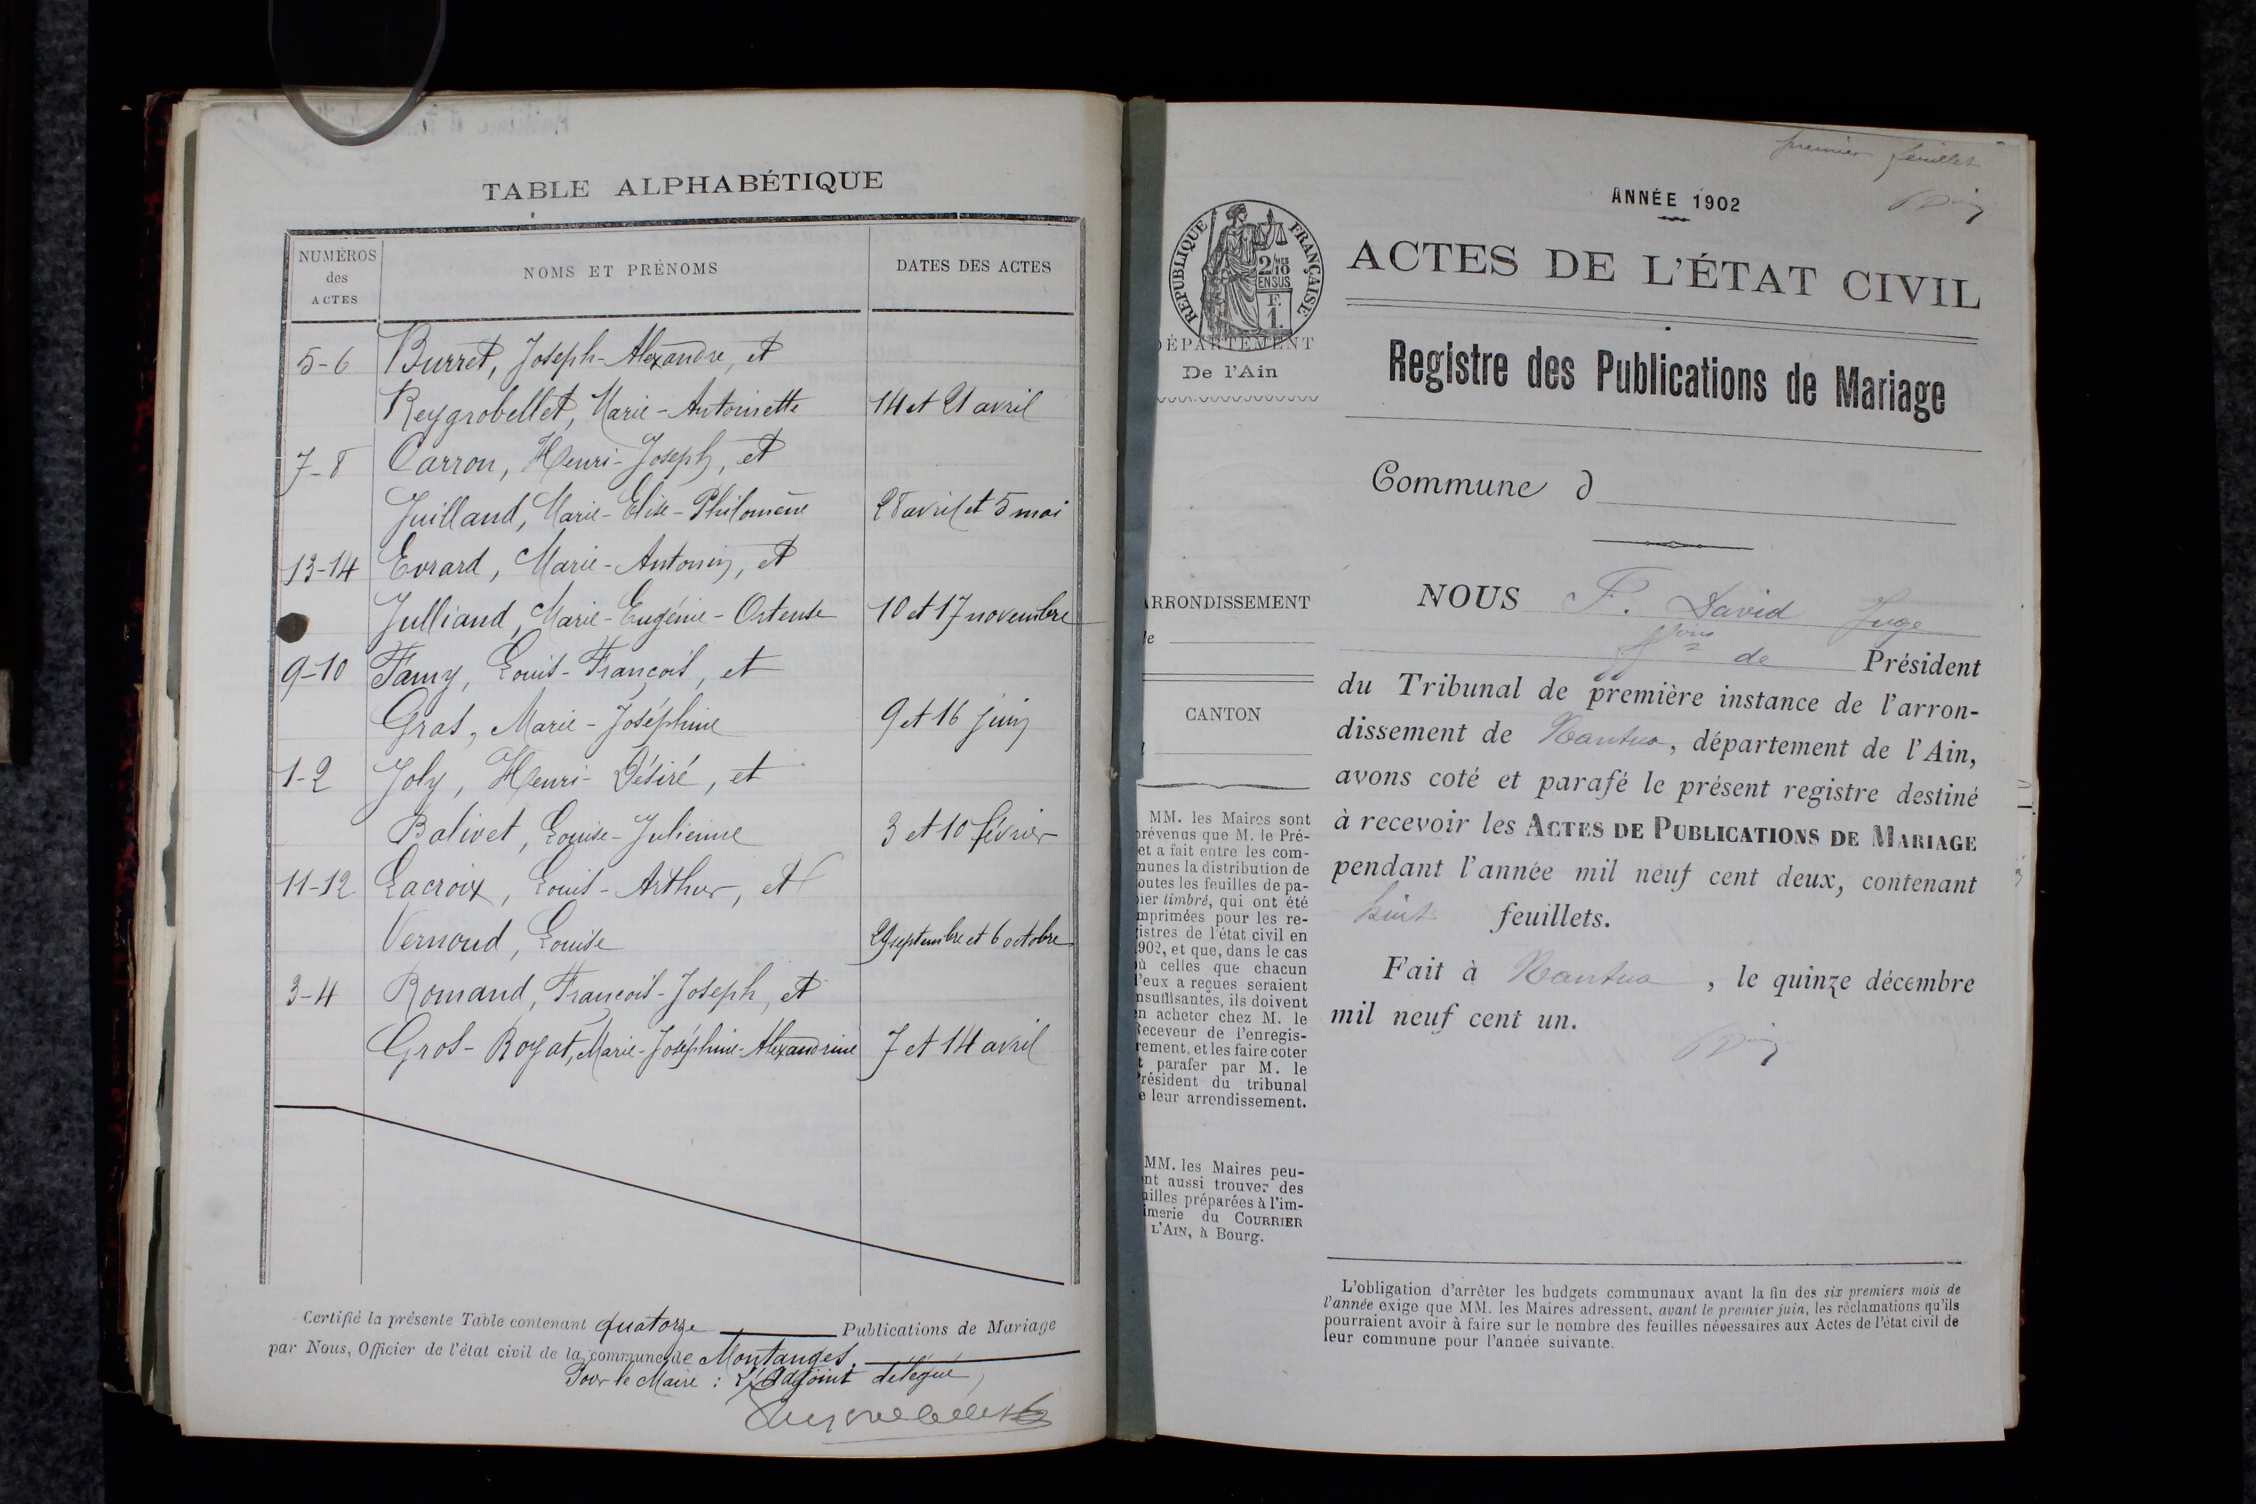 TABLE ALPHABÉTIQUE
NUMÉROS
des
ACTES
NOMS ET PRÉNOMS
DATES DES ACTES
5-6 Burret, Joseph-Alexandre, et
Reygrobellet, Marie-Antoinette 14 et 21 avril
7-8 Carron, Henri-Joseph, et
Juilland, Marie-Elise-Philomène 28 avril et 5 mai
13-14 Evrard, Marie-Antonin, et
Julliand, Marie-Eugénie-Ortense 10 et 17 novembre
9-10 Famy, Louis-François, et
Gras, Marie-Joséphine 9 et 16 juin
1-2 Joly, Henri-Désiré, et
Balivet, Louise-Julienne 3 et 10 février
11-12 Lacroix, Louis-Arthur, et
Vernoud, Louise 29 septembre et 6 octobre
3-4 Romand, François-Joseph, et
Gros-Royat, Marie-Joséphine-Alexandrine 7 et 14 avril
Certifié la présente Table contenant quatorze Publications de Mariage
par Nous, Officier de l'état civil de la commune de Montanges.
Pour le Maire : L'Adjoint délégué,
premier feuillet
ANNÉE 1902
RÉPUBLIQUE FRANÇAISE
2/10 EN SUS
F.
1.
ACTES DE L'ÉTAT CIVIL
DÉPARTEMENT
De l'Ain
Registre des Publications de Mariage
Commune d
ARRONDISSEMENT
CANTON
NOUS F. David Juge
ffons de Président
du Tribunal de première instance de l'arron-
dissement de Nantua, département de l'Ain,
avons coté et parafé le présent registre destiné
à recevoir les ACTES DE PUBLICATIONS DE MARIAGE
pendant l'année mil neuf cent deux, contenant
huit feuillets.
Fait à Nantua, le quinze décembre
mil neuf cent un.
MM. les Maires sont
prévenus que M. le Pré-
et a fait entre les com-
munes la distribution de
toutes les feuilles de pa-
pier timbré, qui ont été
imprimées pour les re-
gistres de l'état civil en
1902, et que, dans le cas
où celles que chacun
d'eux a reçues seraient
insuffisantes, ils doivent
en acheter chez M. le
Receveur de l'enregis-
rement, et les faire coter
t parafer par M. le
Président du tribunal
e leur arrondissement.
MM. les Maires peu-
nt aussi trouver des
uilles préparées à l'im-
imerie du COURRIER
L'AIN, à Bourg.
L'obligation d'arrêter les budgets communaux avant la fin des six premiers mois de
l'année exige que MM. les Maires adressent, avant le premier juin, les réclamations qu'ils
pourraient avoir à faire sur le nombre des feuilles nécessaires aux Actes de l'état civil de
leur commune pour l'année suivante.